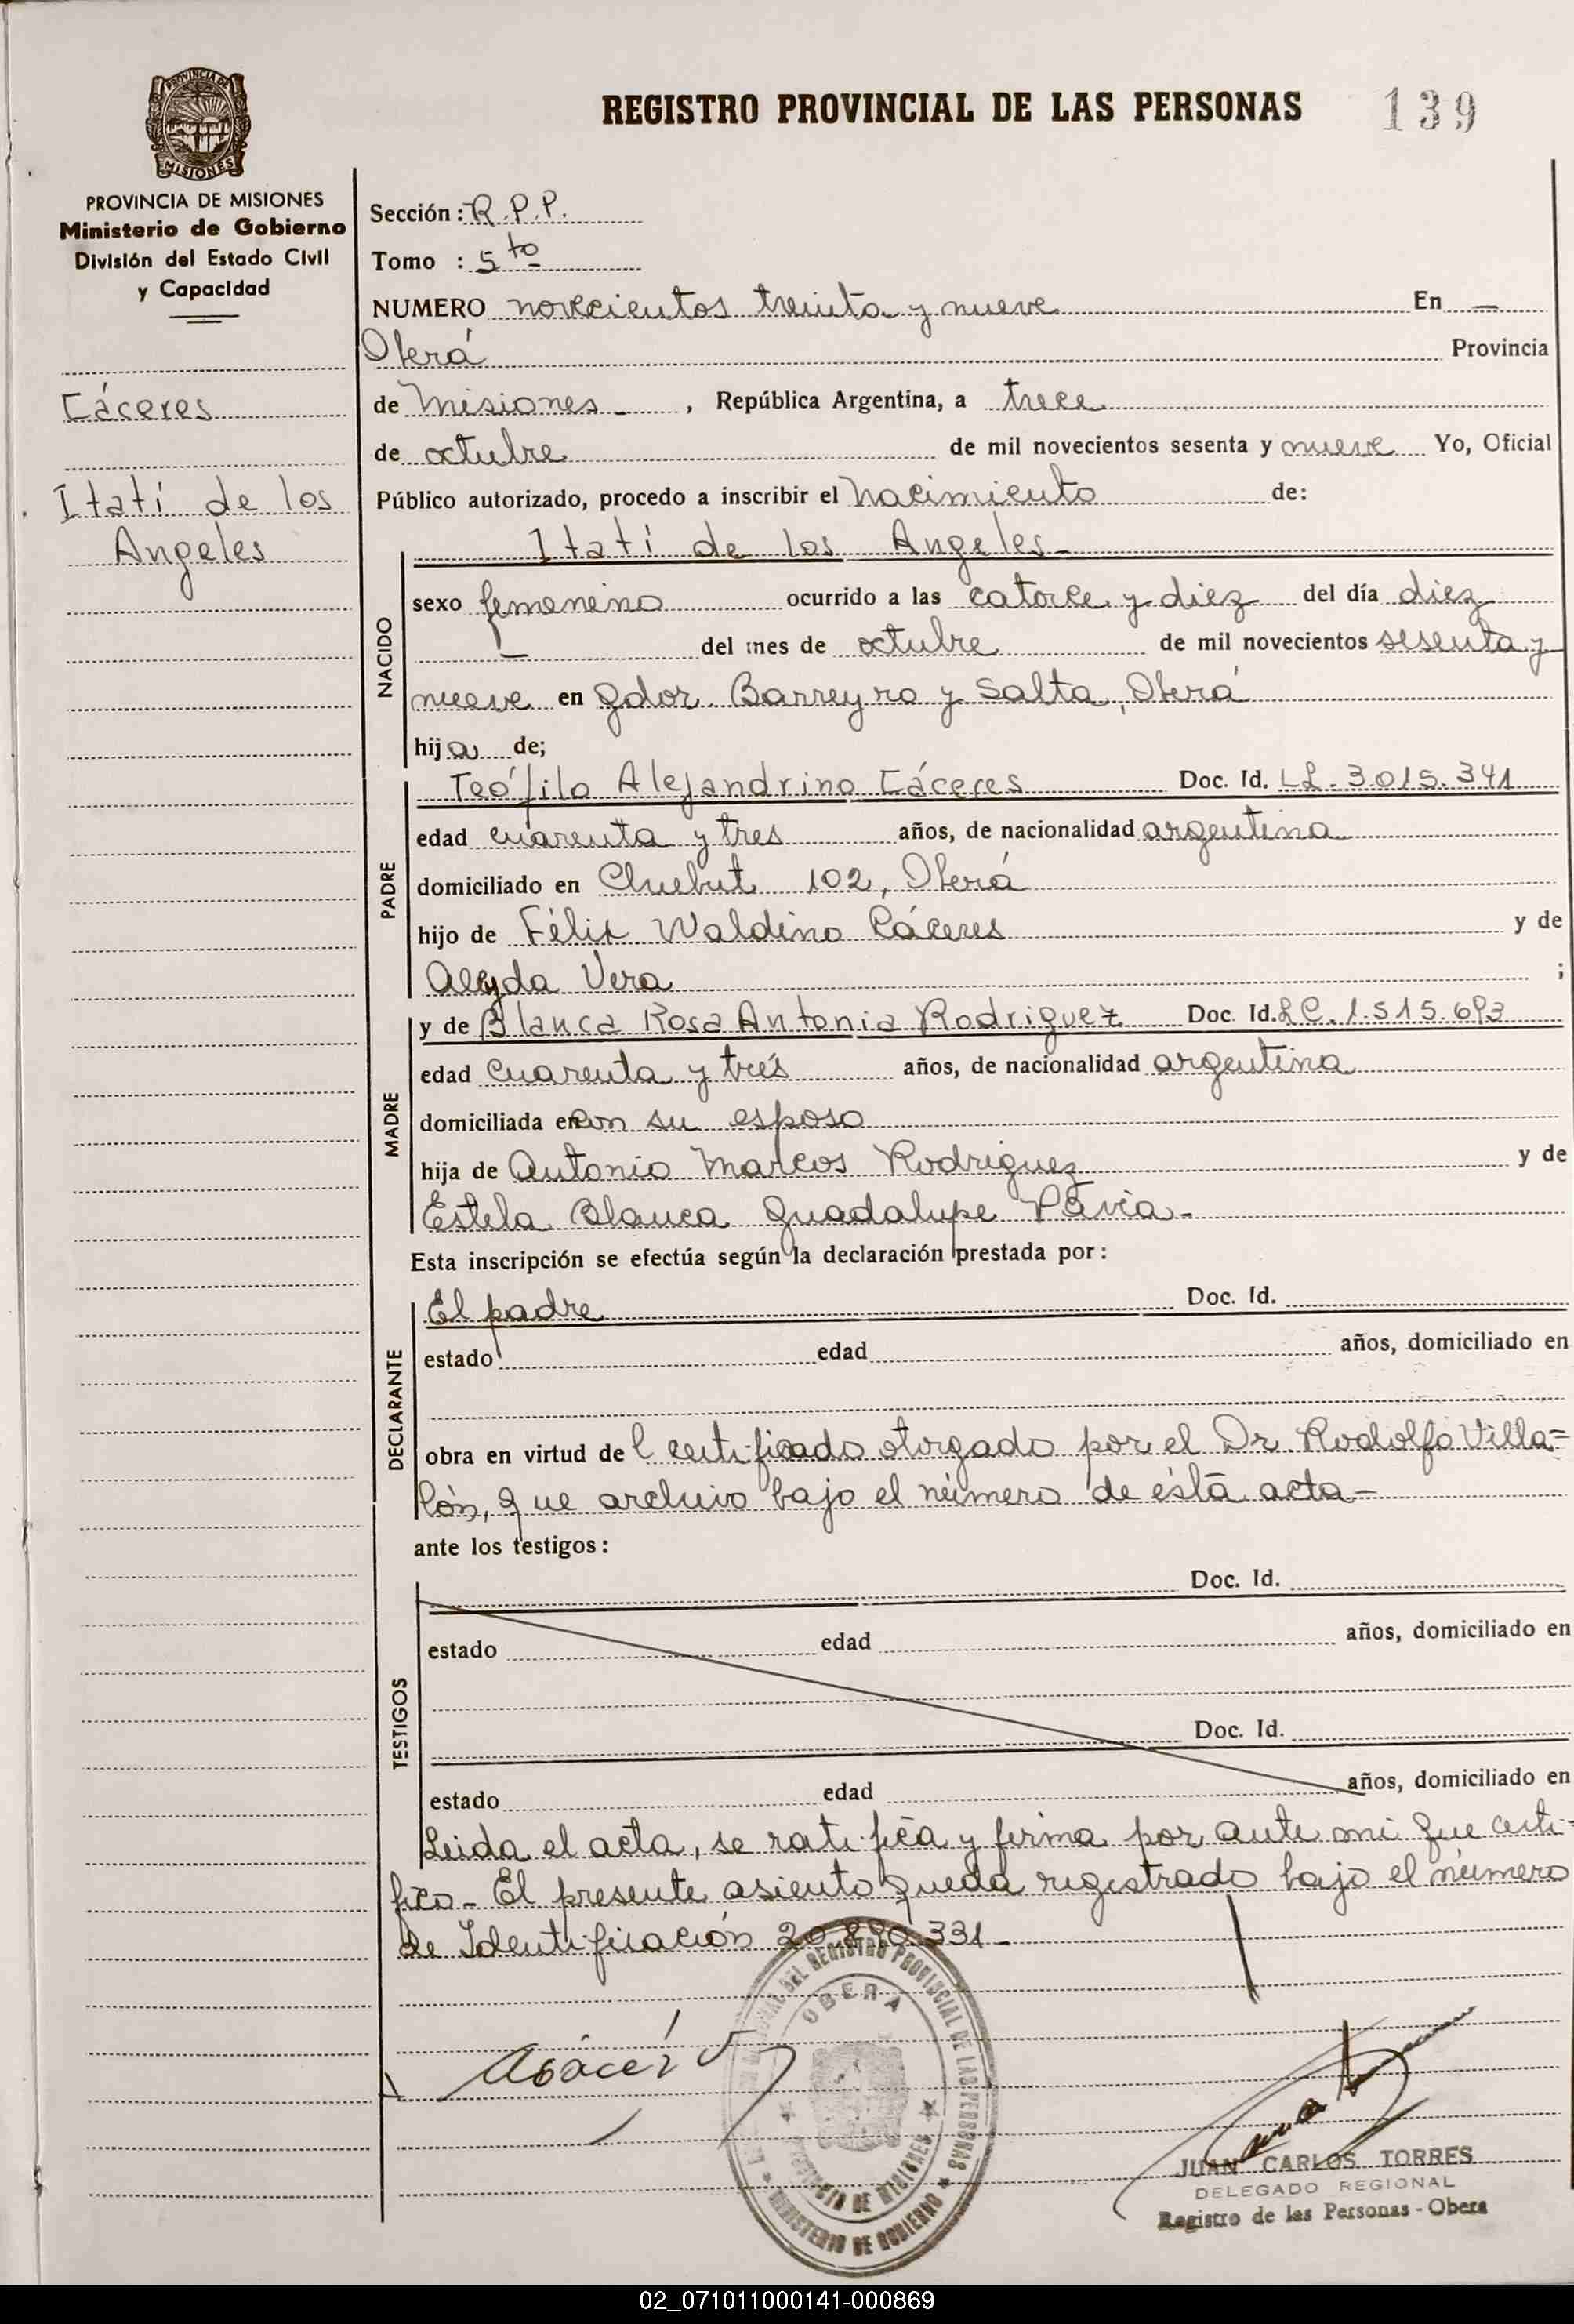 REGISTRO PROVINCIAL DE LAS PERSONAS 139
PROVINCIA DE
MISIONES
PROVINCIA DE MISIONES
Ministerio de Gobierno
División del Estado Civil
y Capacidad
Cáceres
Itatí de los
Angeles
Sección: R.P.P.
Tomo : 5to
NUMERO novecientos treinta y nueve En —
Oberá Provincia
de Misiones - , República Argentina, a trece
de octubre de mil novecientos sesenta y nueve Yo, Oficial
Público autorizado, procedo a inscribir el nacimiento de:
NACIDO
Itatí de los Angeles-
sexo femenino ocurrido a las catorce y diez del día diez
— del mes de octubre de mil novecientos sesenta y
nueve en Gdor. Barreyro y Salta, Oberá
hija de;
PADRE
Teófilo Alejandrino Cáceres Doc. Id. LL. 3.015.341
edad cuarenta y tres años, de nacionalidad argentina
domiciliado en Chubut 102, Oberá
hijo de Félix Waldino Cáceres y de
Aleyda Vera ;
MADRE
y de Blanca Rosa Antonia Rodriguez Doc. Id. LC. 1.515.693
edad cuarenta y trés años, de nacionalidad argentina
domiciliada en con su esposo
hija de Antonio Marcos Rodriguez y de
Estela Blanca Guadalupe Pavía-
Esta inscripción se efectúa según la declaración prestada por:
DECLARANTE
El padre Doc. Id.
estado edad años, domiciliado en
obra en virtud del certificado otorgado por el Dr Rodolfo Villa=
lón, que archivo bajo el número de ésta acta-
ante los testigos:
TESTIGOS
Doc. Id.
estado edad años, domiciliado en
Doc. Id.
estado edad años, domiciliado en
Leida el acta, se ratifica y firma por ante mi que certi-
fico- El presente asiento queda registrado bajo el número
de Identificación 20.890.331-
DEL REGISTRO PROVINCIAL DE LAS PERSONAS
OBERA
PROVINCIA DE MISIONES
MINISTERIO DE GOBIERNO
JUAN CARLOS TORRES
DELEGADO REGIONAL
Registro de las Personas - Obera
02_071011000141-000869